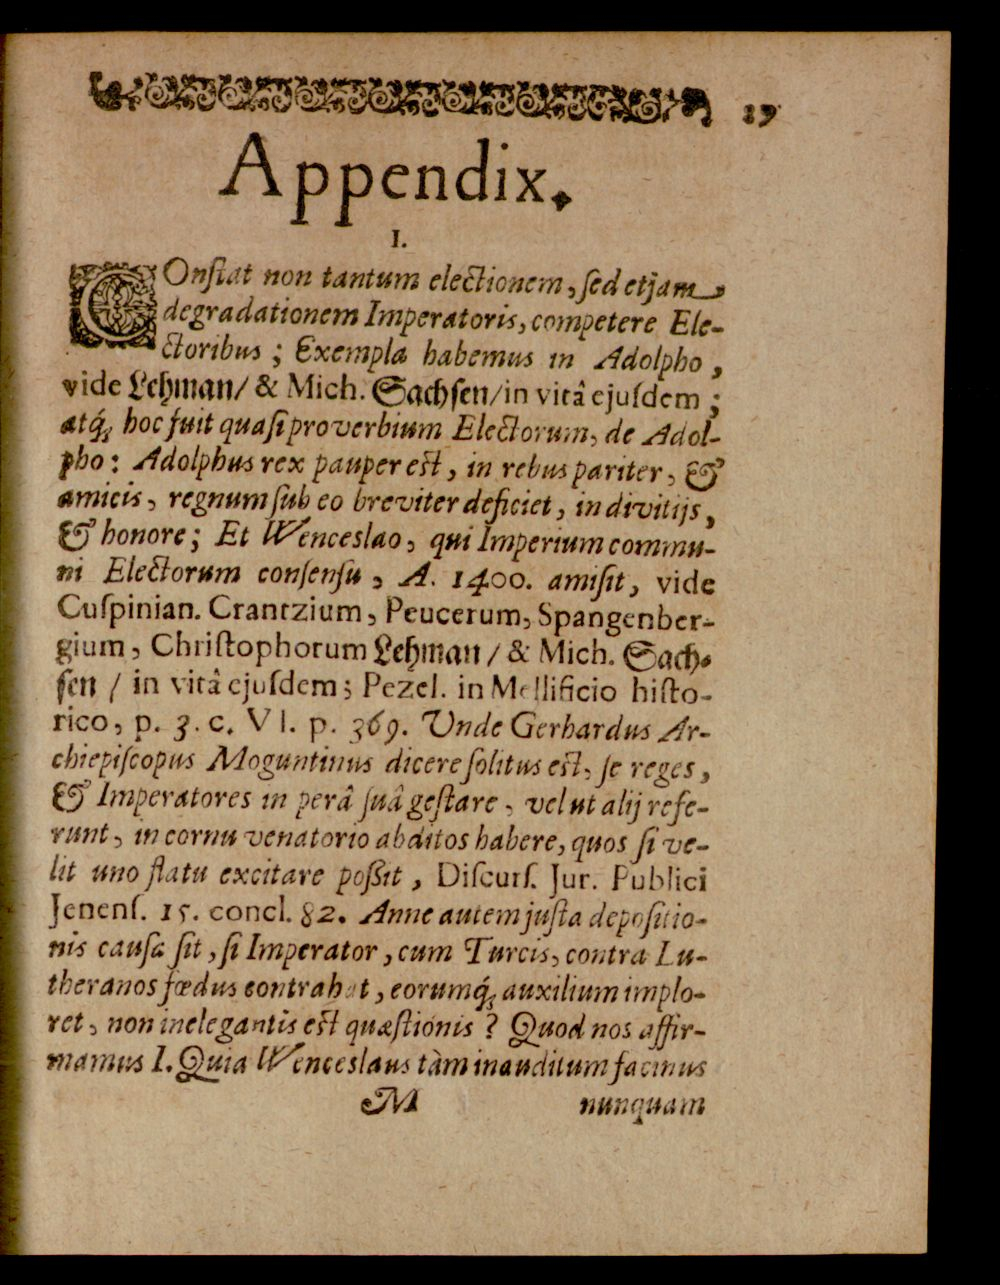 19
Appendix.
I.
COnſtat non tantum electionem, ſed etjam
degradationem Imperatoris, competere Ele-
ctoribus; Exempla habemus in Adolpho,
vide Lehman/ & Mich. Sachſen/ in vitâ ejuſdem;
atq́; hoc fuit quaſi proverbium Electorum, de Adol-
pho: Adolphus rex pauper eſt, in rebus pariter, &
amicis, regnum ſub eo breviter deficiet, in divitijs,
& honore; Et Wenceslao, qui Imperium commu-
ni Electorum conſenſu, A. 1400. amiſit, vide
Cuſpinian. Crantzium, Peucerum, Spangenber-
gium, Chriſtophorum Lehman / & Mich. Sach-
ſen / in vitâ ejuſdem; Pezel. in Mellificio hiſto-
rico, p. 3. c. VI. p. 369. Unde Gerhardus Ar-
chiepiſcopus Moguntinus dicere ſolitus eſt, ſe reges,
& Imperatores in perâ ſuâ geſtare, vel ut alij refe-
runt, in cornu venatorio abditos habere, quos ſi ve-
lit uno flatu excitare poßit, Diſcurſ. Jur. Publici
Jenenſ. 15. concl. 82. Anne autem juſta depoſitio-
nis cauſa ſit, ſi Imperator, cum Turcis, contra Lu-
theranos fœdus contrahat, eorumq́; auxilium implo-
ret, non inelegantis eſt quæſtionis? Quod nos affir-
mamus I. Quia Wenceslaus tàm inauditum facinus
M nunquam